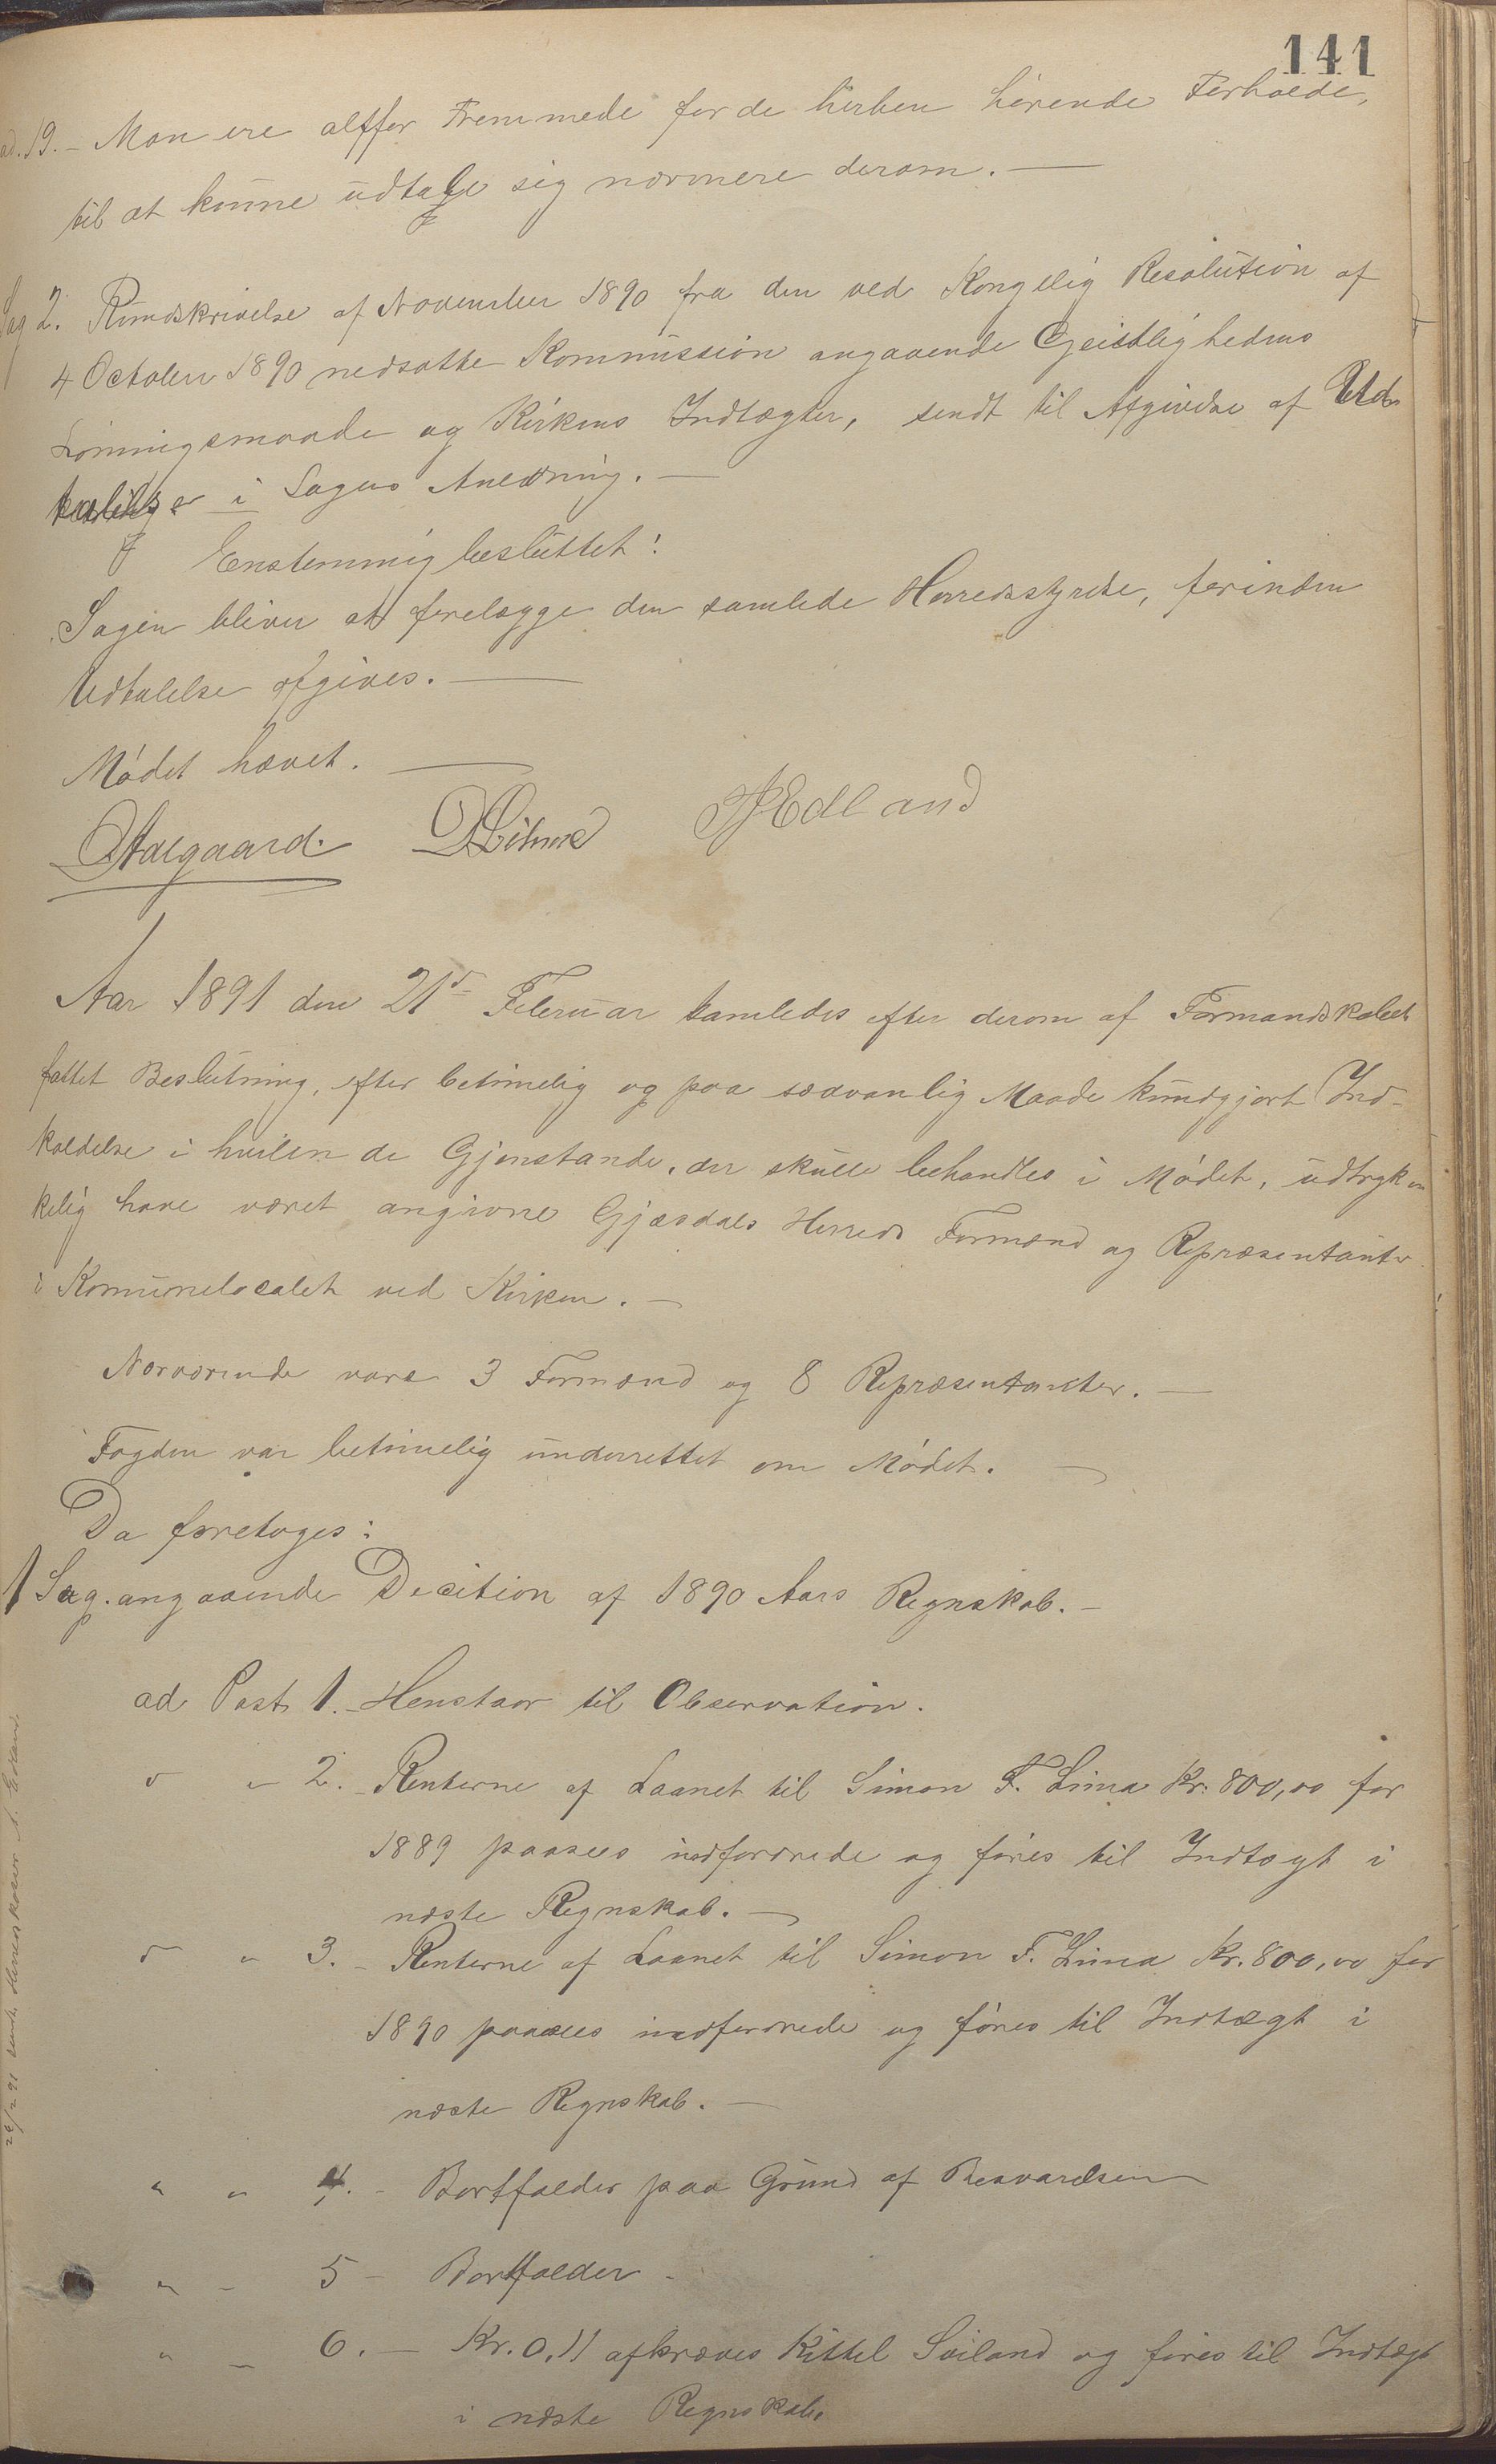 141
ad. 19. – Man ere altfor Fremmede for de herhen hörende Forholde,
til at kunne udtale sig nærmere derom. –
Sag 2. Rundskrivelse af November 1890 fra den ved Kongelig Resolution af
4 October 1890 nedsatte Kommission angaaende Geistlighedens
Lönningsmaade og Kirkens Indtægter, sendt til Afgivelse af Ud-
talelser i Sagens Anledning. –
Enstemmig besluttet:
Sagen bliver at forelægge den samlede Herredsstyrelse, forinden
Udtalelse afgives. –
Mödet hævet. –
Aalgaard. Edland
Aar 1891 den 21de Februar samledes efter derom af Formandskabet
fattet Beslutning, efter betimelig og paa sædvanlig Maade kundgjort Ind-
kaldelse i hvilken de Gjenstande, der skulle behandles i Mödet, udtryk-
kelig have været angivne Gjæsdals Herreds Formænd og Repræsentanter
i Komunelocalet ved Kirken. –
Nærværende vare 3 Formænd og 8 Repræsentanter. –
Fogden var betimelig underrettet om Mödet. –
Da foretoges:
1 Sag. angaaende Decition af 1890 Aars Regnskab. –
ad Post 1. – Henstaar til Observation.
" " 2. – Renterne af Laanet til Simon F. Lima Kr. 800,00 for
1889 paasees indfordrede og föres til Indtægt i
næste Regnskab. –
" " 3. – Renterne af Laanet til Simon F. Lima Kr. 800,00 for
1890 paasees indfordrede og föres til Indtægt i
næste Regnskab. –
" " 4. – Bortfalder paa Grund af Besvarelsen
" " 5 – Bortfalder –
" " 6. – Kr. 0,11 afkræves Kittel Sviland og föres til Indtægt
i næste Regnskab.
26/2 91 sendt Herredskasser Edland.